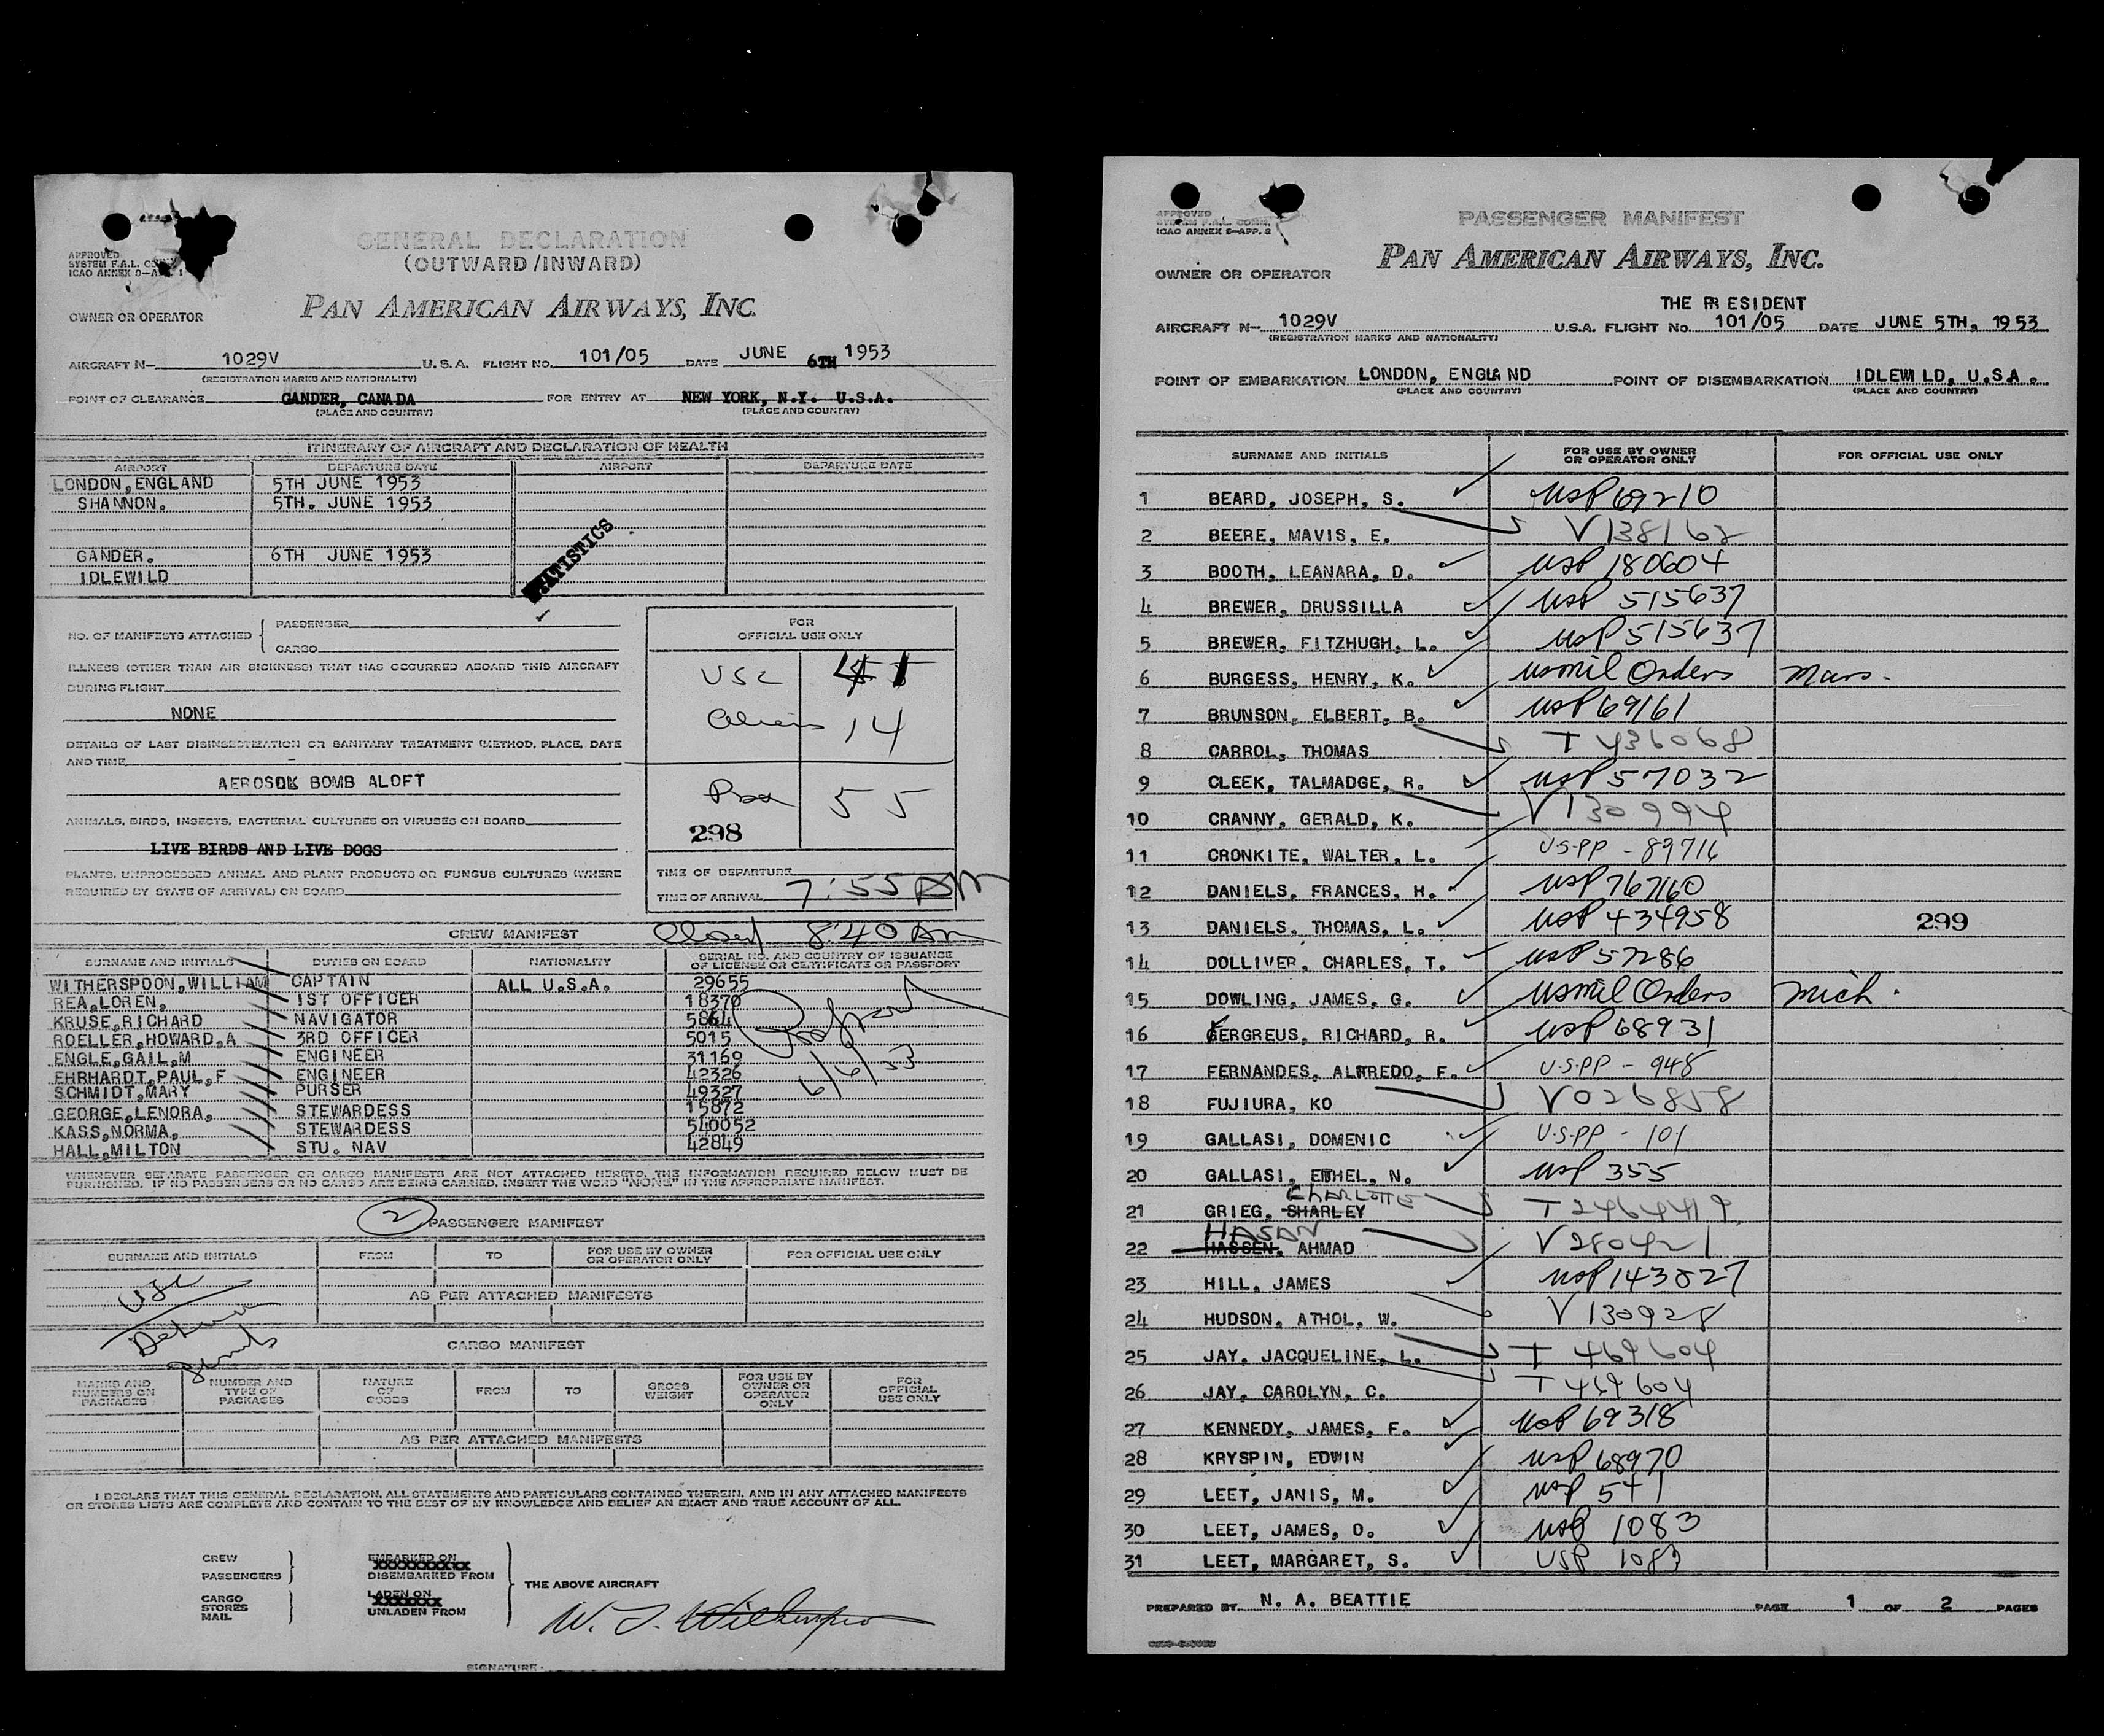 GENERAL DECLARATION
(OUTWARD/INWARD)
APPROVED
SYSTEM F.A.L.
ICAO ANNEX
PAN AMERICAN AIRWAYS, INC.
OWNER OR OPERATOR
AIRCRAFT N- 1029V U.S.A. FLIGHT NO. 101/05 DATE JUNE 6TH 1953
(REGISTRATION MARKS AND NATIONALITY)
POINT OF CLEARANCE GANDER, CANADA FOR ENTRY AT NEW YORK, N.Y. U.S.A.
(PLACE AND COUNTRY) (PLACE AND COUNTRY)
ITINERARY OF AIRCRAFT AND DECLARATION OF HEALTH
AIRPORT DEPARTURE DATE AIRPORT DEPARTURE DATE
LONDON, ENGLAND 5TH JUNE 1953
SHANNON. 5TH. JUNE 1953
GANDER. 6TH JUNE 1953
IDLEWILD
NO. OF MANIFESTS ATTACHED { PASSENGER
CARGO
ILLNESS (OTHER THAN AIR SICKNESS) THAT HAS OCCURRED ABOARD THIS AIRCRAFT
DURING FLIGHT
NONE
DETAILS OF LAST DISINSECTIZATION OR SANITARY TREATMENT (METHOD, PLACE, DATE
AND TIME
AEROSOL BOMB ALOFT
ANIMALS, BIRDS, INSECTS, BACTERIAL CULTURES OR VIRUSES ON BOARD
LIVE BIRDS AND LIVE DOGS
PLANTS, UNPROCESSED ANIMAL AND PLANT PRODUCTS OR FUNGUS CULTURES (WHERE
REQUIRED BY STATE OF ARRIVAL) ON BOARD
FOR
OFFICIAL USE ONLY
USC 41
Aliens 14
Pax 55
298
TIME OF DEPARTURE
TIME OF ARRIVAL 7:55 AM
Closed 8:40 AM
CREW MANIFEST
SURNAME AND INITIALS DUTIES ON BOARD NATIONALITY SERIAL NO. AND COUNTRY OF ISSUANCE
OF LICENSE OR CERTIFICATE OR PASSPORT
WITHERSPOON, WILLIAM CAPTAIN ALL U.S.A. 29655
REA, LOREN. 1ST OFFICER 18370
KRUSE, RICHARD NAVIGATOR 5864
ROELLER, HOWARD, A 3RD OFFICER 5015
ENGLE, GAIL, M ENGINEER 31169
EHRHARDT, PAUL, F ENGINEER 42326
SCHMIDT, MARY PURSER 49327
GEORGE, LENORA, STEWARDESS 15872
KASS, NORMA, STEWARDESS 540052
HALL, MILTON STU. NAV 42849
6/6/53
WHENEVER SEPARATE PASSENGER OR CARGO MANIFESTS ARE NOT ATTACHED HERETO, THE INFORMATION REQUIRED BELOW MUST BE
FURNISHED. IF NO PASSENGERS OR NO CARGO ARE BEING CARRIED, INSERT THE WORD "NONE" IN THE APPROPRIATE MANIFEST.
2 PASSENGER MANIFEST
SURNAME AND INITIALS FROM TO FOR USE BY OWNER
OR OPERATOR ONLY FOR OFFICIAL USE ONLY
AS PER ATTACHED MANIFESTS
USC
CARGO MANIFEST
MARKS AND
NUMBERS ON
PACKAGES NUMBER AND
TYPE OF
PACKAGES NATURE
OF
GOODS FROM TO GROSS
WEIGHT FOR USE BY
OWNER OR
OPERATOR
ONLY FOR
OFFICIAL
USE ONLY
AS PER ATTACHED MANIFESTS
I DECLARE THAT THIS GENERAL DECLARATION, ALL STATEMENTS AND PARTICULARS CONTAINED THEREIN, AND IN ANY ATTACHED MANIFESTS
OR STORES LISTS ARE COMPLETE AND CONTAIN TO THE BEST OF MY KNOWLEDGE AND BELIEF AN EXACT AND TRUE ACCOUNT OF ALL.
CREW
PASSENGERS } EMBARKED ON
DISEMBARKED FROM
CARGO
STORES
MAIL } LADEN ON
UNLADEN FROM
} THE ABOVE AIRCRAFT
SIGNATURE
APPROVED
ICAO ANNEX 9-APP. 2
PASSENGER MANIFEST
PAN AMERICAN AIRWAYS, INC.
OWNER OR OPERATOR
THE PRESIDENT
AIRCRAFT N- 1029V U.S.A. FLIGHT No. 101/05 DATE JUNE 5TH, 1953
(REGISTRATION MARKS AND NATIONALITY)
POINT OF EMBARKATION LONDON, ENGLAND POINT OF DISEMBARKATION IDLEWILD, U.S.A.
(PLACE AND COUNTRY) (PLACE AND COUNTRY)
SURNAME AND INITIALS FOR USE BY OWNER
OR OPERATOR ONLY FOR OFFICIAL USE ONLY
1 BEARD, JOSEPH, S. USP 69210
2 BEERE, MAVIS, E. V 138162
3 BOOTH, LEANARA, D. USP 180604
4 BREWER, DRUSSILLA USP 515637
5 BREWER, FITZHUGH, L. USP 515637
6 BURGESS, HENRY, K. USmil Orders Mars.
7 BRUNSON, ELBERT, B. USP 69161
8 CARROL, THOMAS T 436068
9 CLEEK, TALMADGE, R. USP 57032
10 CRANNY, GERALD, K. V 130994
11 CRONKITE, WALTER, L. U.S.PP - 89716
12 DANIELS, FRANCES, H. USP 767160
13 DANIELS, THOMAS, L. USP 434958 299
14 DOLLIVER, CHARLES, T. USP 57286
15 DOWLING, JAMES, G. USmil Orders Mich.
16 FERGREUS, RICHARD, R. USP 68931
17 FERNANDES, ALFREDO, F. U.S.PP - 948
18 FUJIURA, KO V 026858
19 GALLASI, DOMENIC U.S.PP - 101
20 GALLASI, ETHEL, N. USP 355
CHARLOTTE
21 GRIEG, SHARLEY T 2464419
HASAN
22 HASSEN, AHMAD V 280421
23 HILL, JAMES USP 143827
24 HUDSON, ATHOL, W. V 130928
25 JAY, JACQUELINE, L. T 469604
26 JAY, CAROLYN, C. T 469604
27 KENNEDY, JAMES, F. USP 69318
28 KRYSPIN, EDWIN USP 68970
29 LEET, JANIS, M. USP 541
30 LEET, JAMES, O. USP 1083
31 LEET, MARGARET, S. USP 1083
PREPARED BY N. A. BEATTIE PAGE 1 OF 2 PAGES